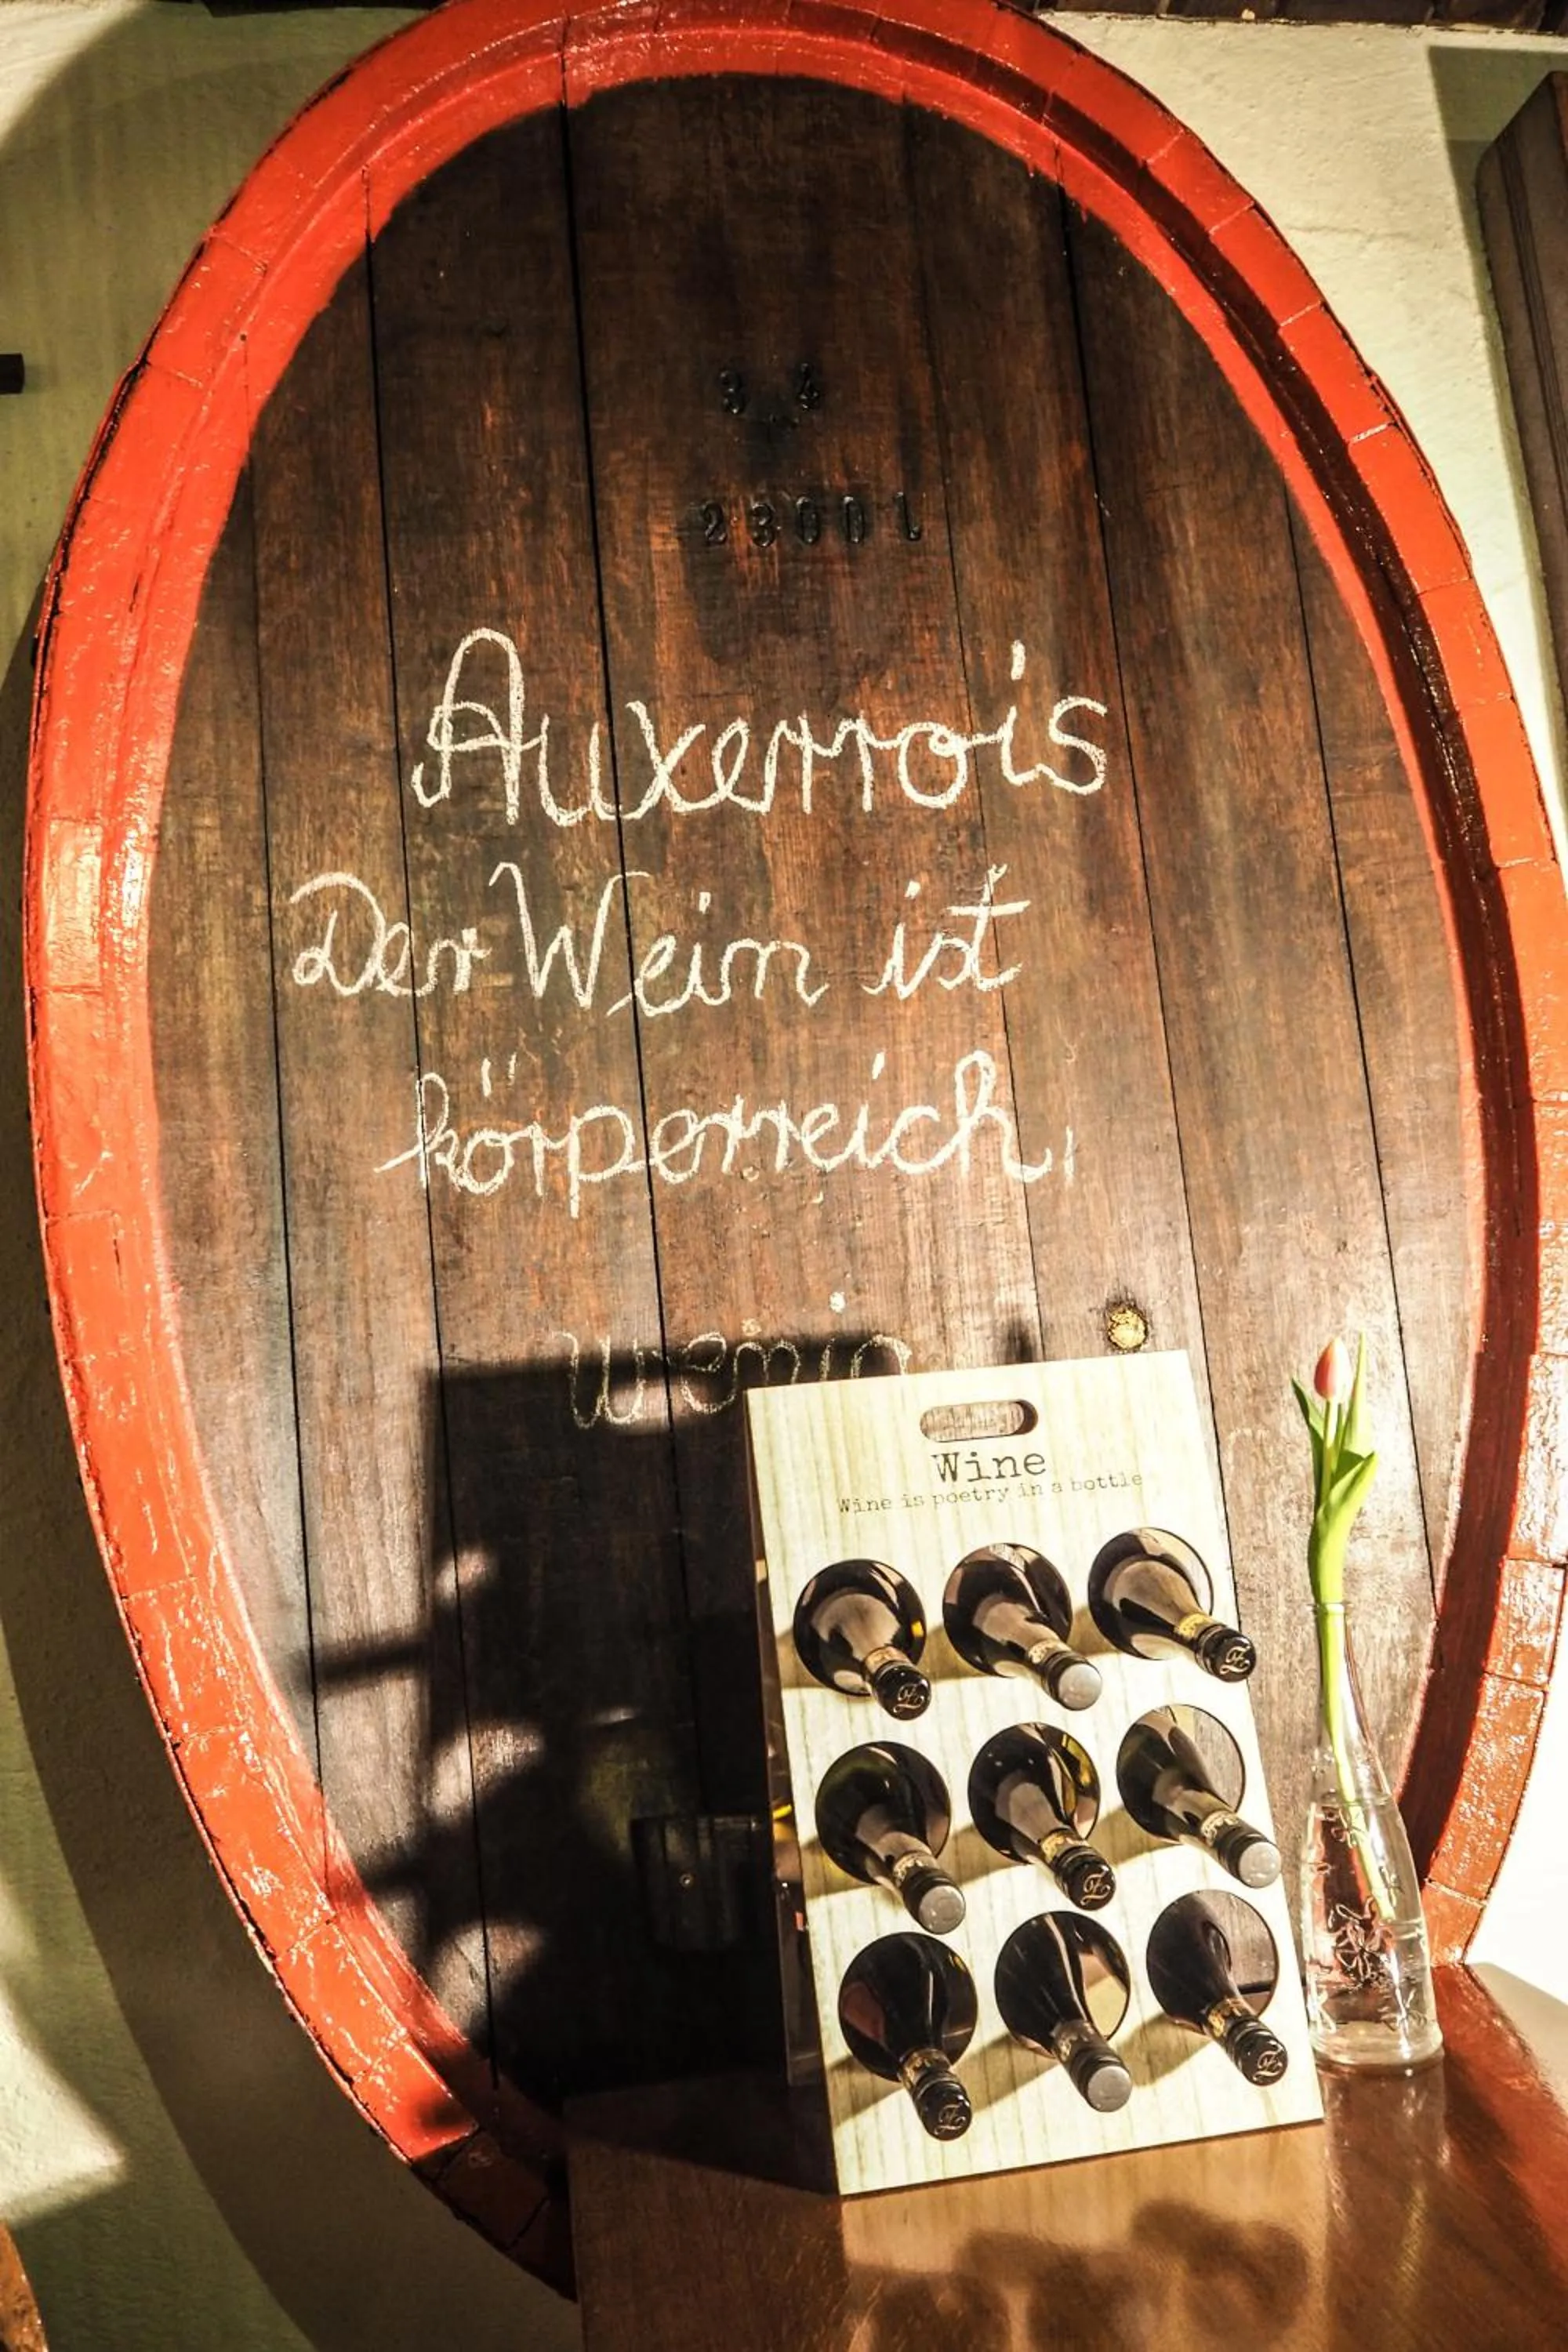 3 4
2300 l
Auxerrois
Der Wein ist
körperreich,
Wine
Wine is poetry in a bottle